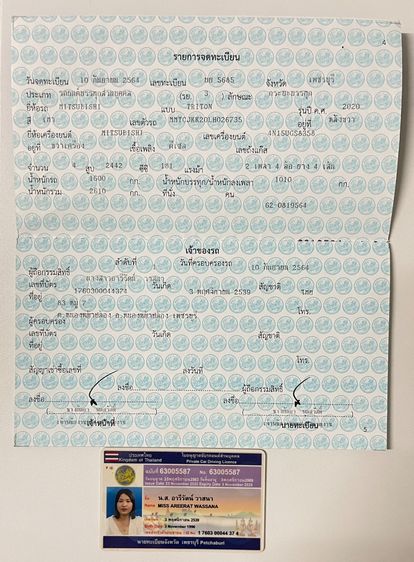 4
รายการจดทะเบียน
วันจดทะเบียน 10 กันยายน 2564 เลขทะเบียน ผย 5645 จังหวัด เพชรบุรี
ประเภท รถยนต์บรรทุกส่วนบุคคล (รย. 3 ) ลักษณะ กระบะบรรทุก
ยี่ห้อรถ MITSUBISHI แบบ TRITON รุ่นปี ค.ศ. 2020
สี เทา เลขตัวรถ อยู่ที่
ยี่ห้อเครื่องยนต์ MITSUBISHI เลขเครื่องยนต์
อยู่ที่ ขวาเครื่อง เชื้อเพลิง ดีเซล เลขถังแก๊ส
จำนวน 4 สูบ 2442 ซีซี 181 แรงม้า 2 เพลา 4 ล้อ ยาง 4 เส้น
น้ำหนักรถ 1600 กก. น้ำหนักบรรทุก/น้ำหนักลงเพลา 1010 กก.
น้ำหนักรวม 2610 กก. ที่นั่ง คน
62-0819564
เจ้าของรถ
ลำดับที่ วันที่ครอบครองรถ 10 กันยายน 2564
ผู้ถือกรรมสิทธิ์
เลขที่บัตร 1760300044374 วันเกิด 3 พฤศจิกายน 2539 สัญชาติ ไทย
ที่อยู่ 63 หมู่ 7 โทร.
ต.หนองหญ้าปล้อง อ.หนองหญ้าปล้อง จ.เพชรบุรี
ผู้ครอบครอง
เลขที่บัตร วันเกิด สัญชาติ
ที่อยู่ โทร.
สัญญาเช่าซื้อเลขที่ ลงวันที่
ลงชื่อ ผู้ถือกรรมสิทธิ์
ลงชื่อ ลงชื่อ
เจ้าหน้าที่ นายทะเบียน
5
ประเทศไทย ใบอนุญาตขับรถยนต์ส่วนบุคคล
Kingdom of Thailand Private Car Driving Licence
ฉบับที่ 63005587 No. 63005587
Issue Date 23 November 2020 Expiry Date 3 November 2026
ชื่อ น.ส. อารีวัฒน์ วาสนา
Name MISS AREERAT WASSANA
เกิดวันที่ 3 พฤศจิกายน 2539
Birth Date 3 November 1996
1 7603 00044 37 4
นายทะเบียนจังหวัด เพชรบุรี Petchaburi